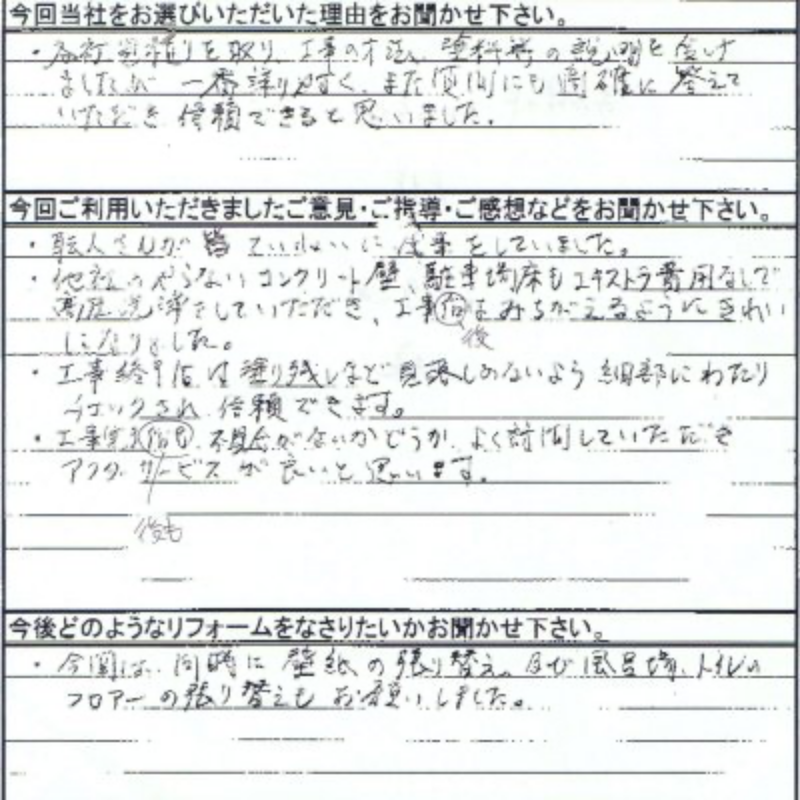 今回当社をお選びいただいた理由をお聞かせ下さい。
・各社見積りを取り、工事の方法、塗料等の説明を受け
ましたが 一番詳しく、また質問にも適確に答えて
いただき 信頼できると思いました。
今回ご利用いただきましたご意見・ご指導・ご感想などをお聞かせ下さい。
・職人さんが皆ていねいに作業をしていました。
・他社のやらないコンクリート壁、駐車場床もエキストラ費用なしで
高圧洗浄をしていただき、工事後はみちがえるようにきれい
になりました。
後
・工事終了後は塗り残しなど見落しのないよう細部にわたり
チェックされ 信頼できます。
・工事完了後も 不具合がないかどうか、よく訪問していただき
アフターサービスが良いと思います。
後も
今後どのようなリフォームをなさりたいかお聞かせ下さい。
・今回は、同時に壁紙の張り替え、及び風呂場、トイレの
フロアーの張り替えもお願いしました。